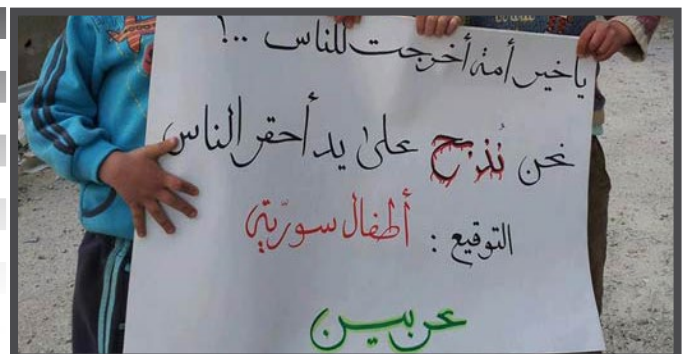 ياخير أمة أخرجت للناس ..!
نحن نُذبح على يد أحقر الناس
التوقيع : أطفال سوريّة
عربين